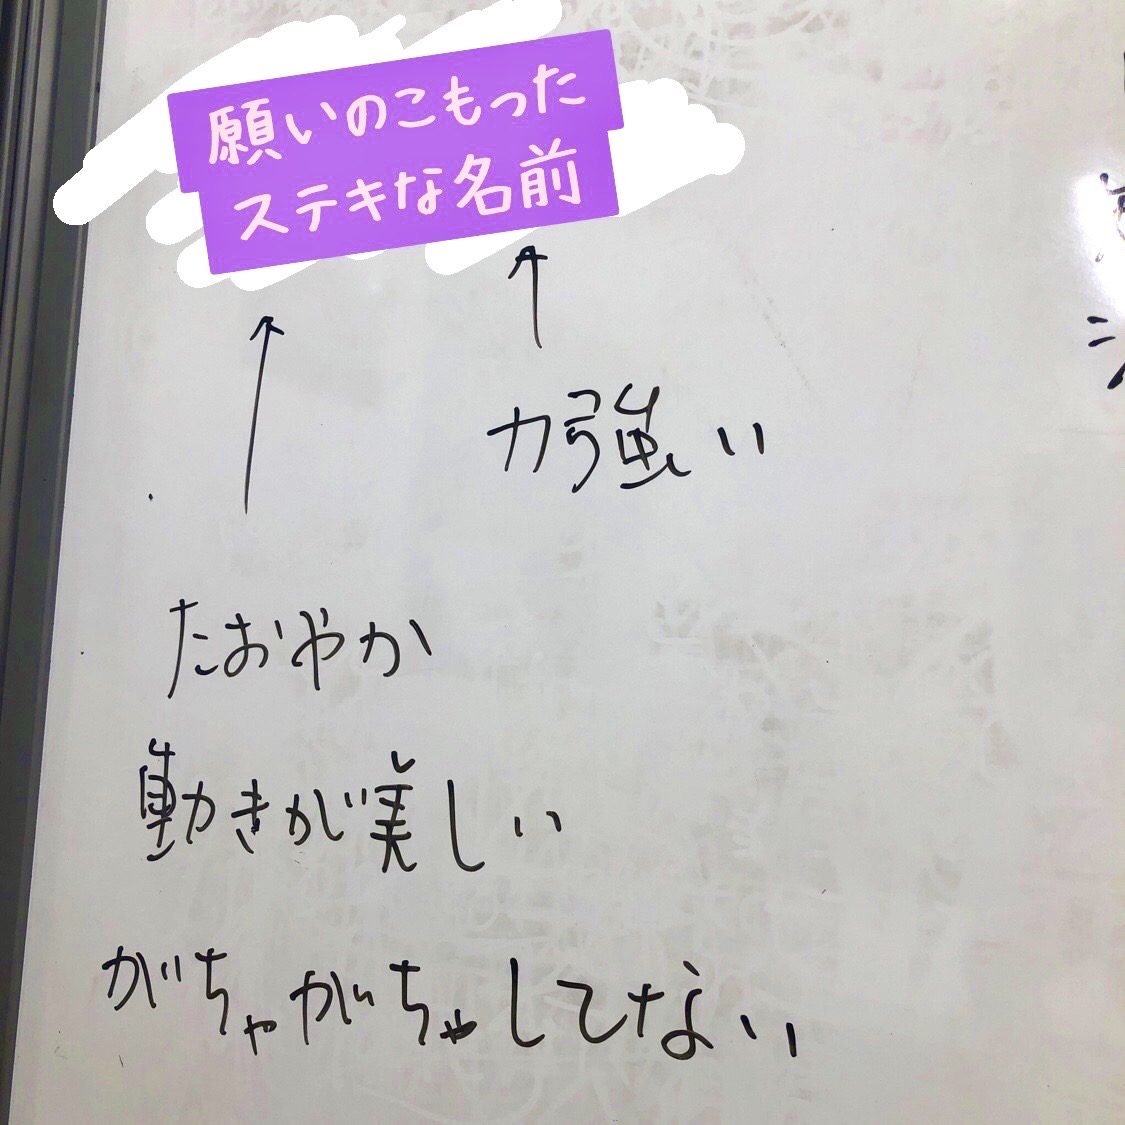 願いのこもった
ステキな名前
力強い
たおやか
動きが美しい
がちゃがちゃしてない